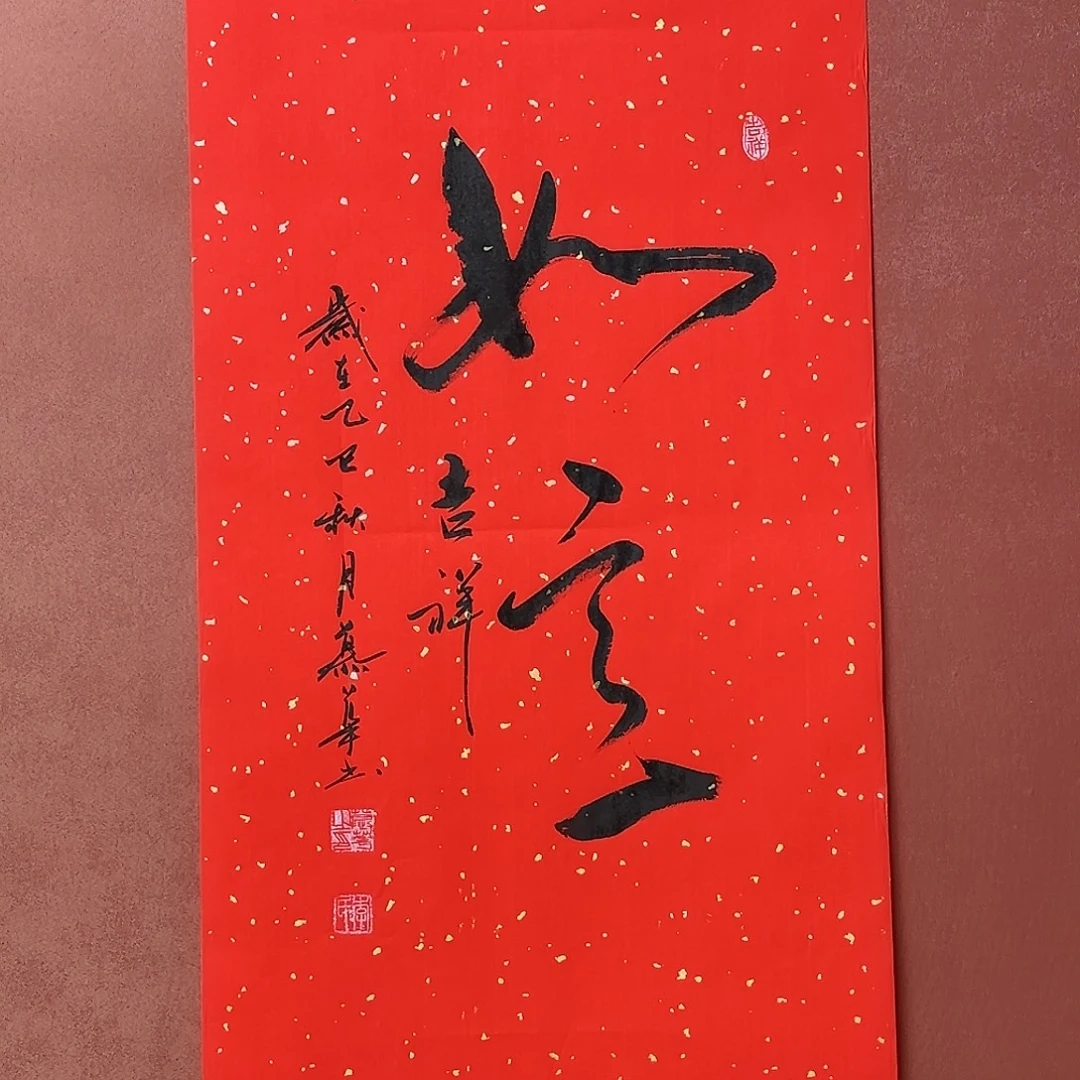 如意
吉祥
歲在乙巳秋月慕華書
吉祥